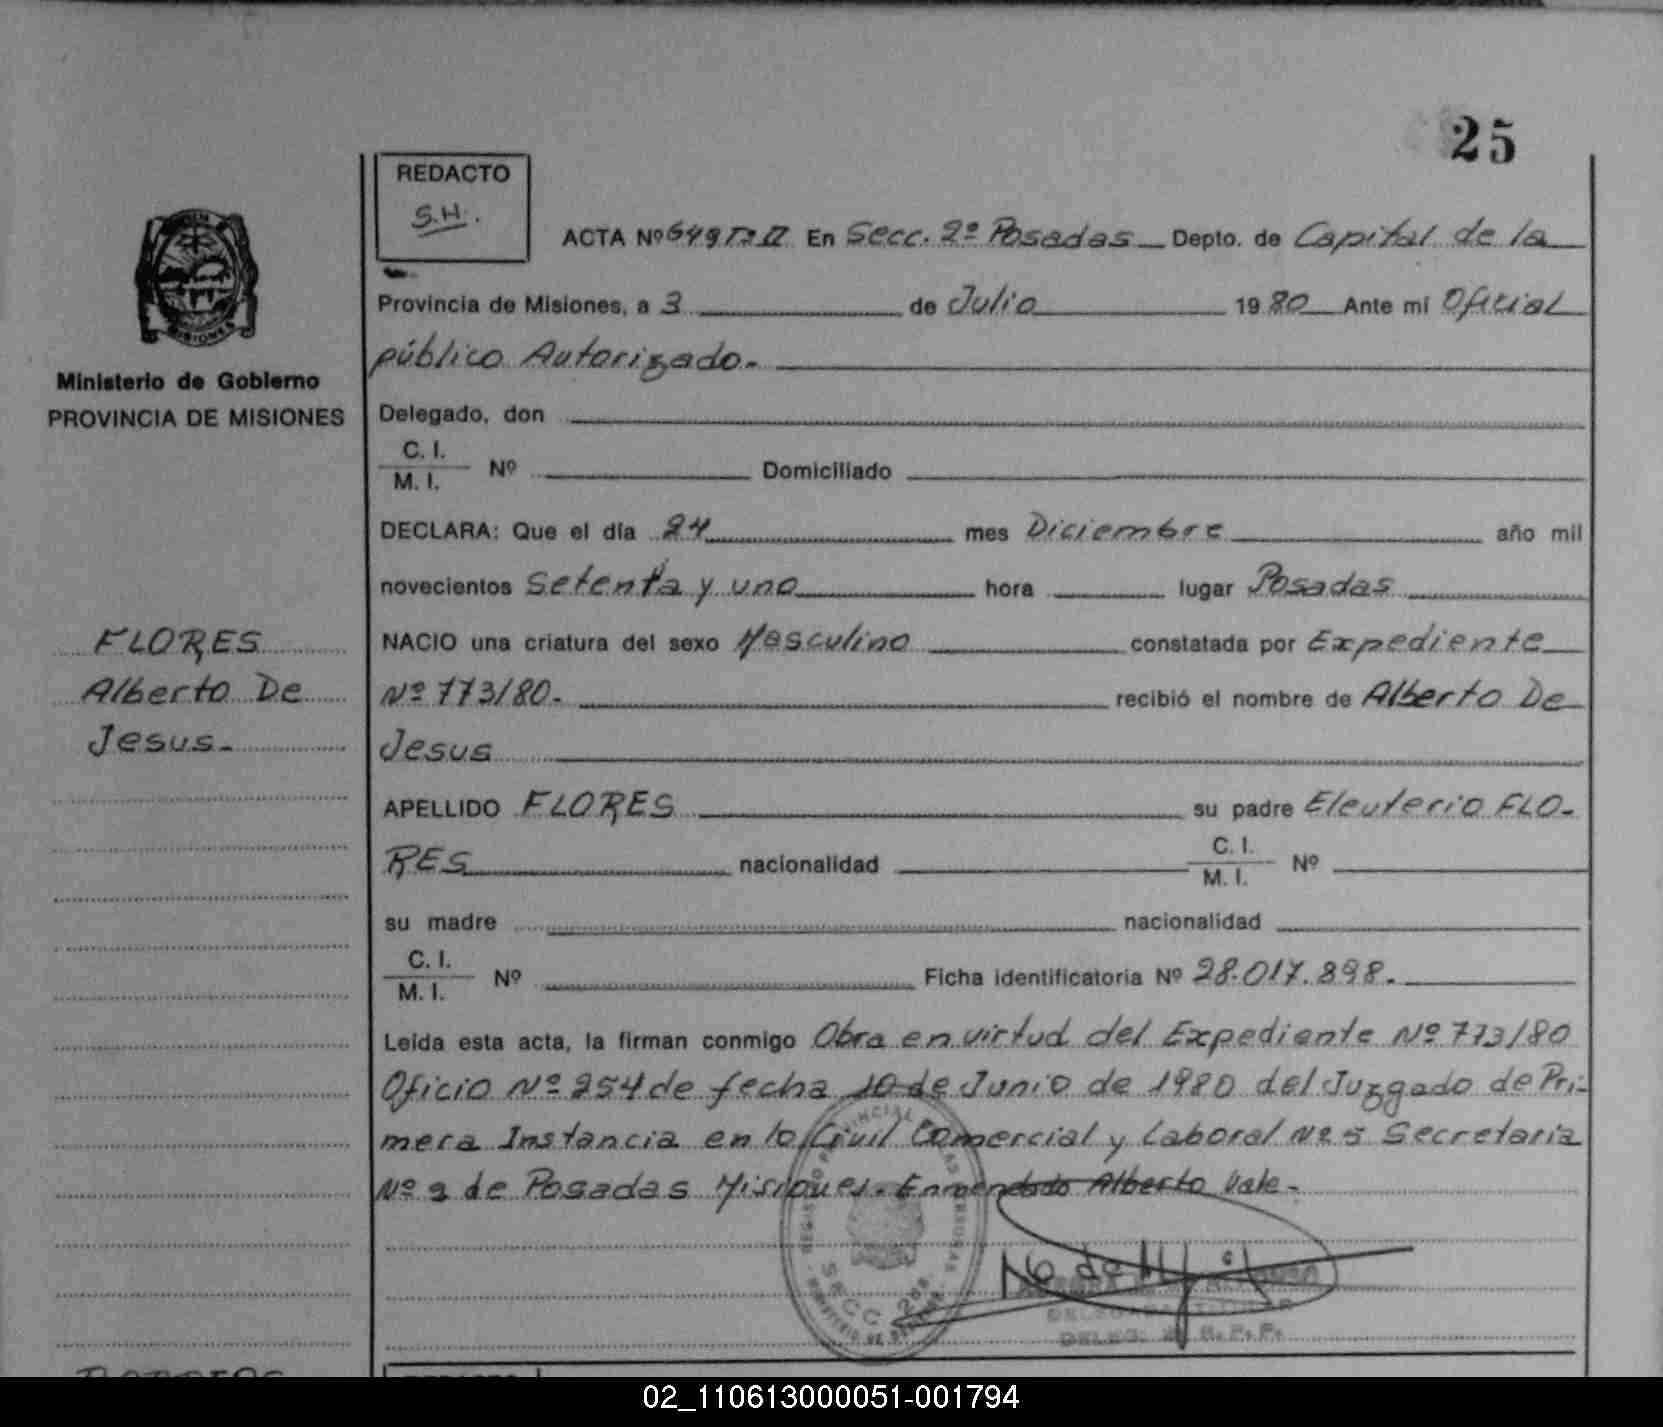 25
REDACTO
S.H.
ACTA Nº 649 Tº II En Secc. 2º Posadas Depto. de Capital de la
Provincia de Misiones, a 3 de Julio 1980 Ante mi Oficial
público Autorizado.-
MISIONES
Ministerio de Gobierno
PROVINCIA DE MISIONES
Delegado, don
C. I.
M. I. Nº Domiciliado
DECLARA: Que el día 24 mes Diciembre año mil
novecientos Setenta y uno hora lugar Posadas
FLORES
Alberto De
Jesus.-
NACIO una criatura del sexo Masculino constatada por Expediente
Nº 773/80.- recibió el nombre de Alberto De
Jesus
APELLIDO FLORES su padre Eleuterio FLO-
RES nacionalidad C. I. M. I. Nº
su madre nacionalidad
C. I.
M. I. Nº Ficha identificatoria Nº 28.017.898.-
Leída esta acta, la firman conmigo Obra en virtud del Expediente Nº 773/80
Oficio Nº 254 de fecha 10 de Junio de 1980 del Juzgado de Pri-
mera Instancia en lo Civil Comercial y Laboral Nº 5 Secretaria
Nº 2 de Posadas Misiones.- Enmendado Alberto Vale.-
SECC. 2da
02_110613000051-001794